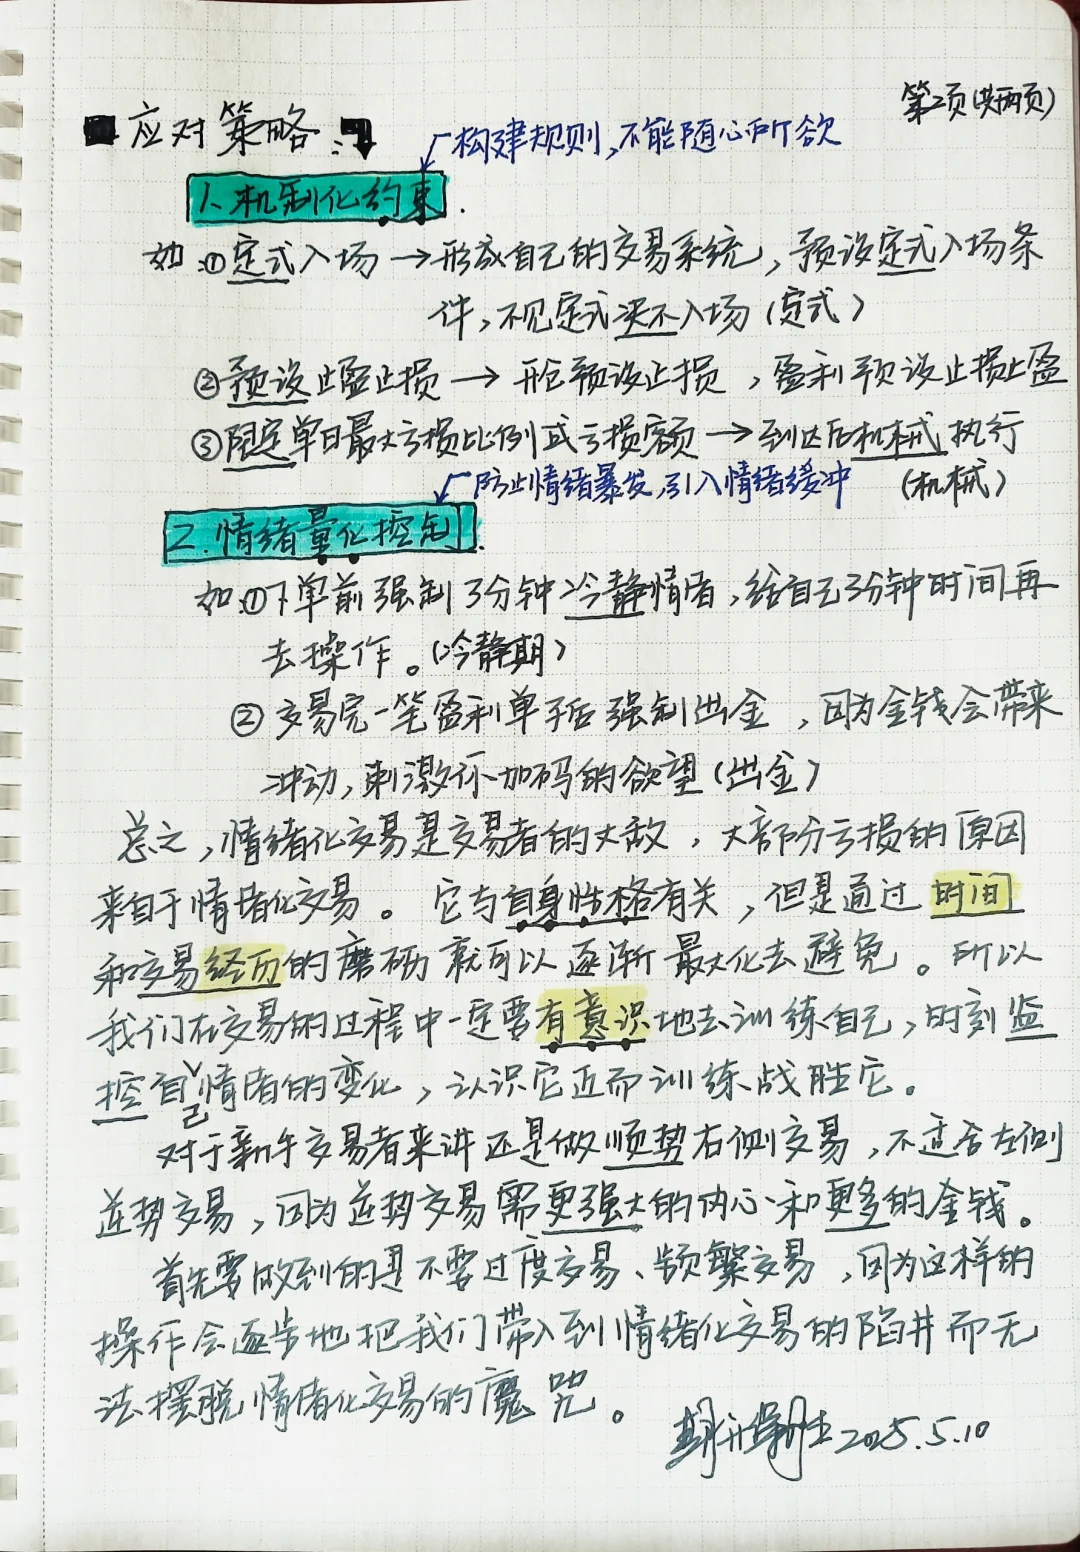 第2页(共两页)
■应对策略:
构建规则,不能随心所欲
1.机制化约束.
如:①定式入场→形成自己的交易系统,预设定式入场条
件,不见定式决不入场(定式)
②预设止盈止损→开仓预设止损,盈利预设止损止盈
③限定单日最大亏损比例或亏损额→到达后机械执行
(机械)
防止情绪暴发,引入情绪缓冲
2.情绪量化控制.
如:①下单前强制3分钟冷静情绪,给自己3分钟时间再
去操作。(冷静期)
②交易完一笔盈利单子后强制出金,因为金钱会带来
冲动,刺激你加码的欲望(出金)
总之,情绪化交易是交易者的大敌,大部分亏损的原因
来自于情绪化交易。它与自身性格有关,但是通过时间
和交易经历的磨砺就可以逐渐最大化去避免。所以
我们在交易的过程中一定要有意识地去训练自己,时刻监
控自己情绪的变化,认识它近而训练战胜它。
对于新手交易者来讲还是做顺势右侧交易,不适合左侧
逆势交易,因为逆势交易需更强大的内心和更多的金钱。
首先要做到的是不要过度交易、频繁交易,因为这样的
操作会逐步地把我们带入到情绪化交易的陷井而无
法摆脱情绪化交易的魔咒。
2025.5.10